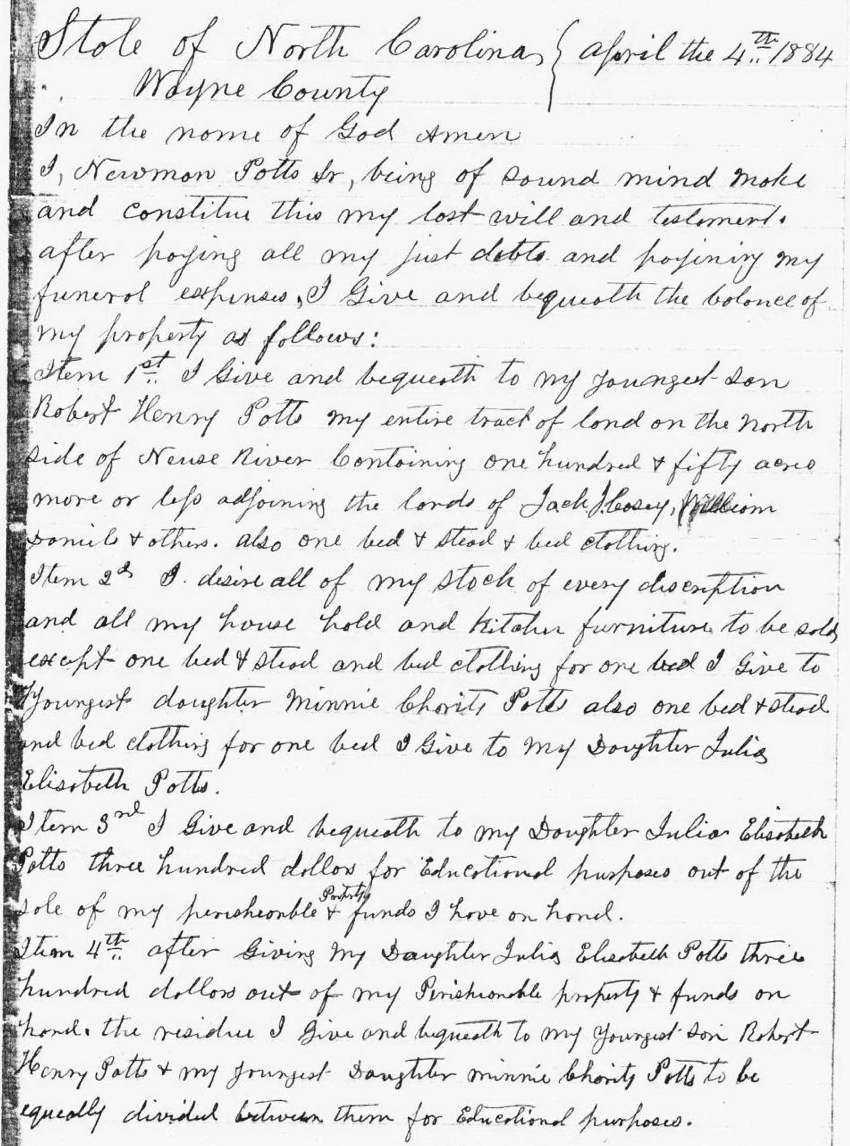 State of North Carolina, { April the 4th 1884
Wayne County
In the name of God Amen
I, Newman Potts Sr, being of sound mind make
and constitue this my last will and testament.
after paying all my just debts and payining my
funeral expenses, I Give and bequeath the balance of
my property as follows:
Item 1st I Give and bequeath to my youngest son
Robert Henry Potts my entire tract of land on the North
side of Neuse River Containing one hundred & fifty acres
more or less adjoining the lands of Jack Casey, William
Daniels & others. also one bed & stead & bed clothing.
Item 2d I desire all of my stock of every discription
and all my house hold and kitchen furniture to be sold
except one bed & stead and bed clothing for one bed I Give to
Youngest daughter Minnie Charity Potts also one bed & stead
and bed clothing for one bed I Give to my Daughter Julia
Elisabeth Potts.
Item 3rd I Give and bequeath to my Daughter Julia Elisabeth
Potts three hundred dollars for Educational purposes out of the
sale of my perisheanble Property & funds I have on hand.
Item 4th after Giving my Daughter Julia Elisabeth Potts three
hundred dollars out of my Perisheanable property & funds on
hand. the residue I Give and bequeath to my Youngest son Robert
Henry Potts & my youngest Daughter minnie Charity Potts to be
equeally divided between them for Educational purposes.